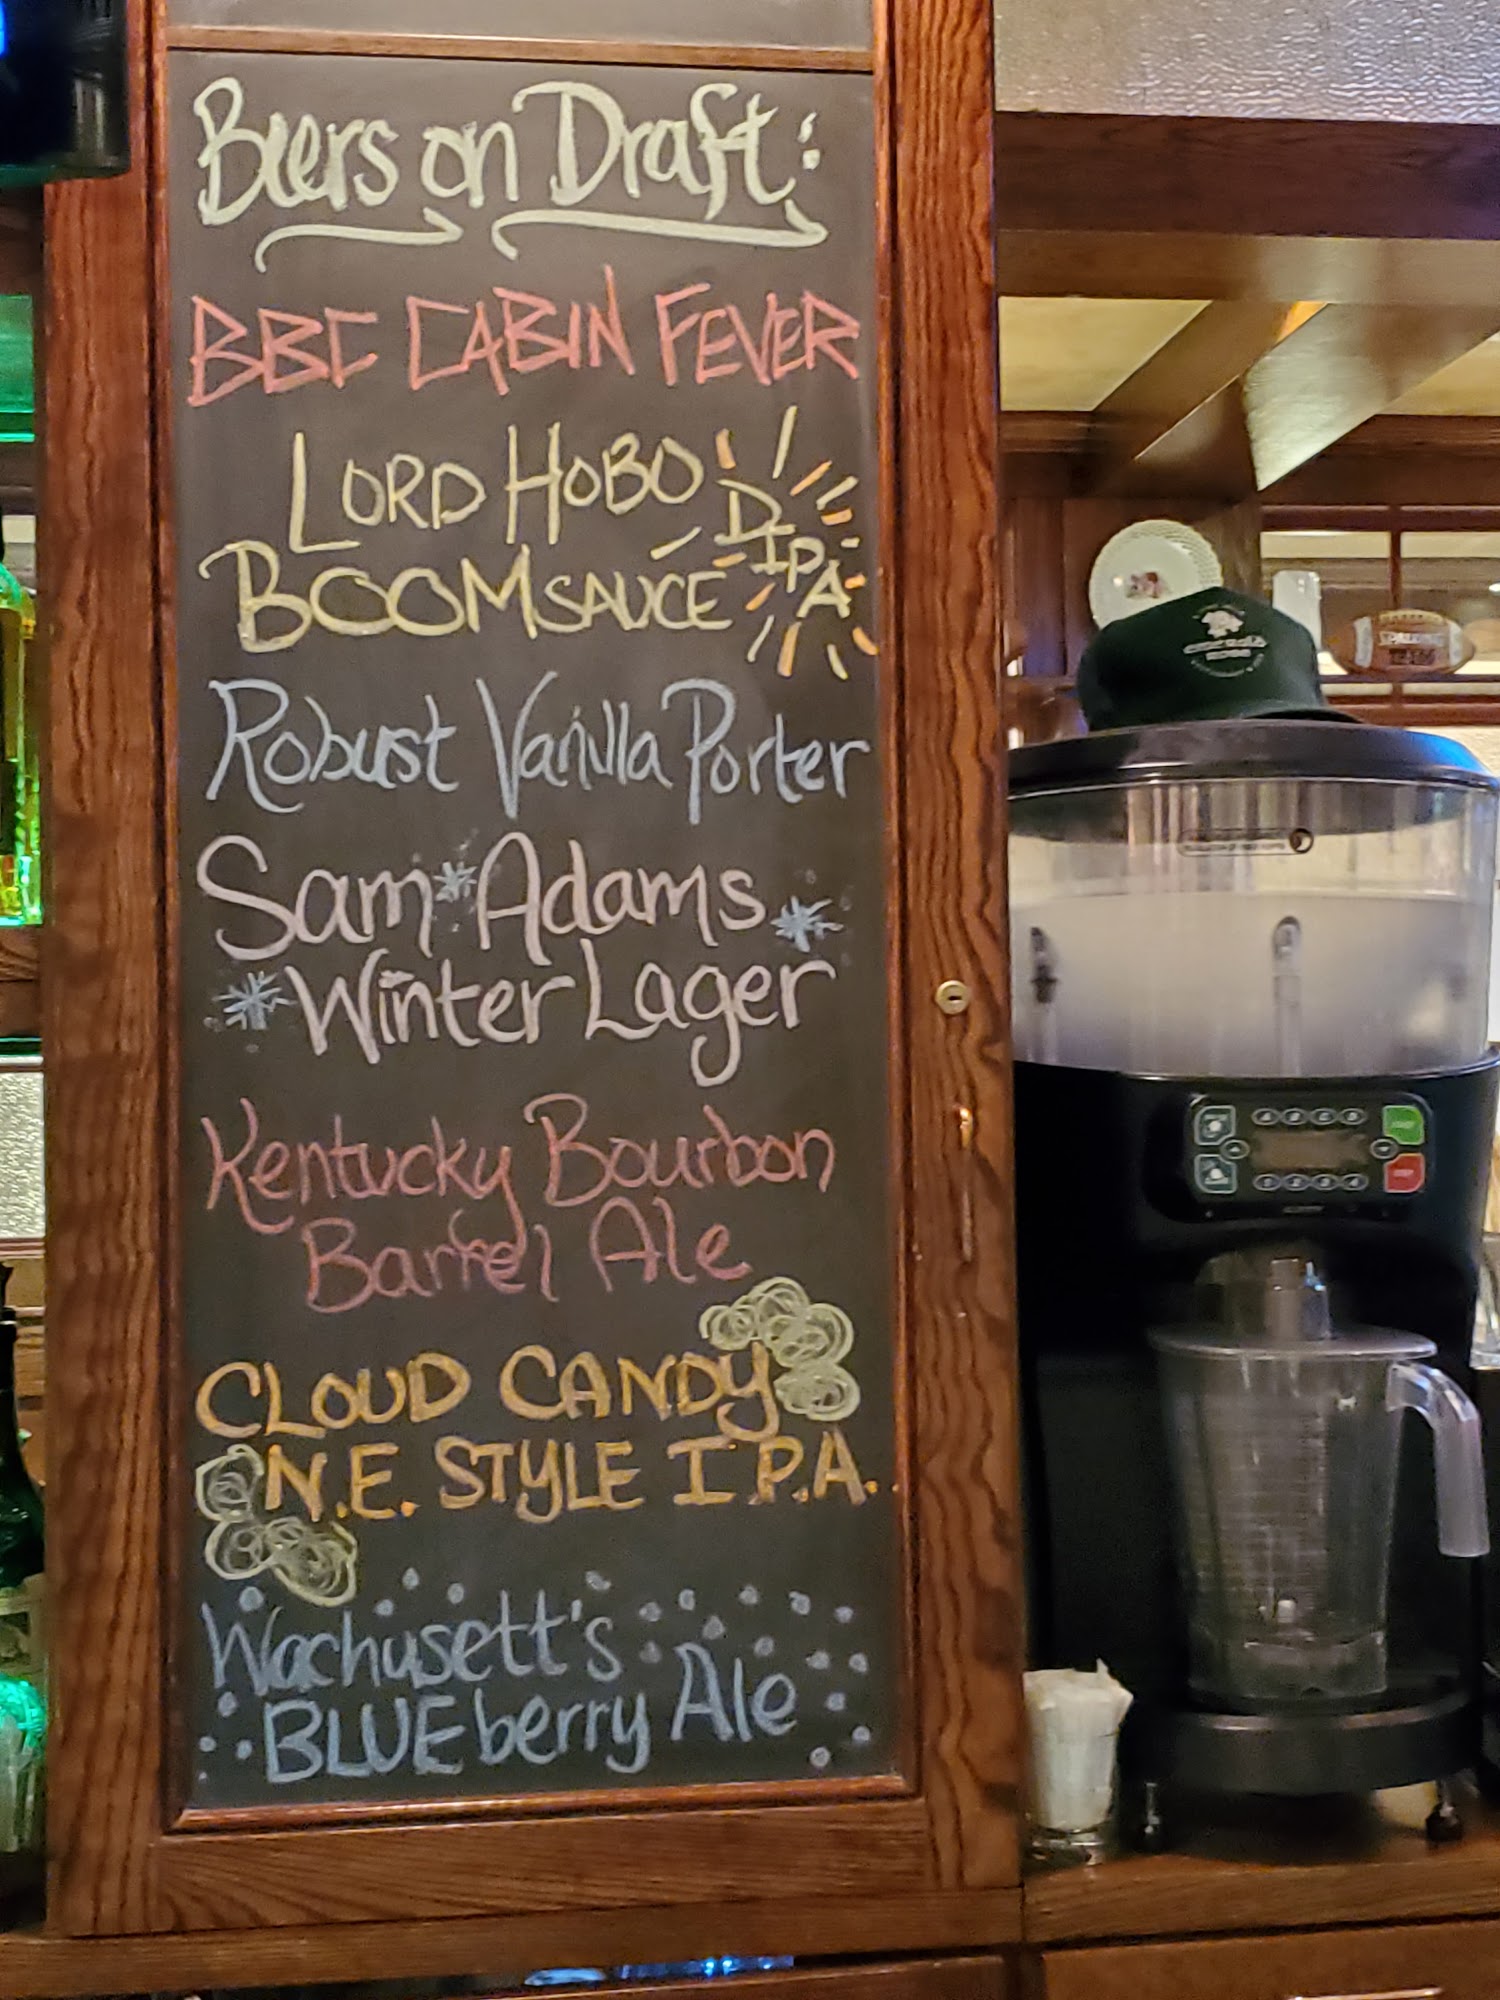 Beers on Draft:
BBC CABIN FEVER
LORD HOBO
BOOMSAUCE DIPA
Robust Vanilla Porter
Sam Adams
Winter Lager
Kentucky Bourbon
Barrel Ale
CLOUD CANDY
N.E. STYLE I.P.A.
Wachusett's
BLUEberry Ale
SPALDING